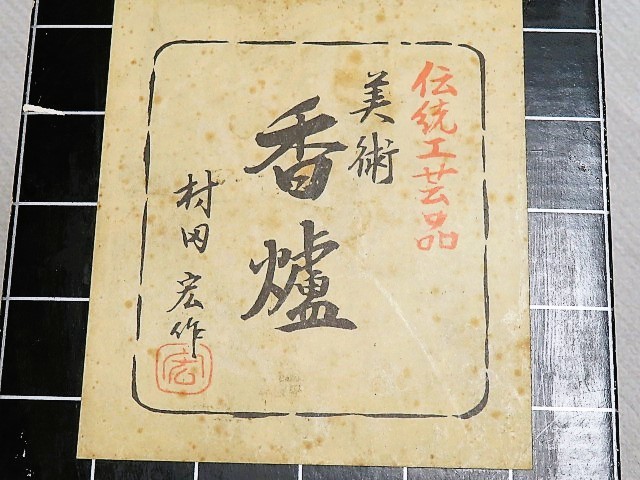 伝統工芸品
美術
香爐
村田宏作
宏